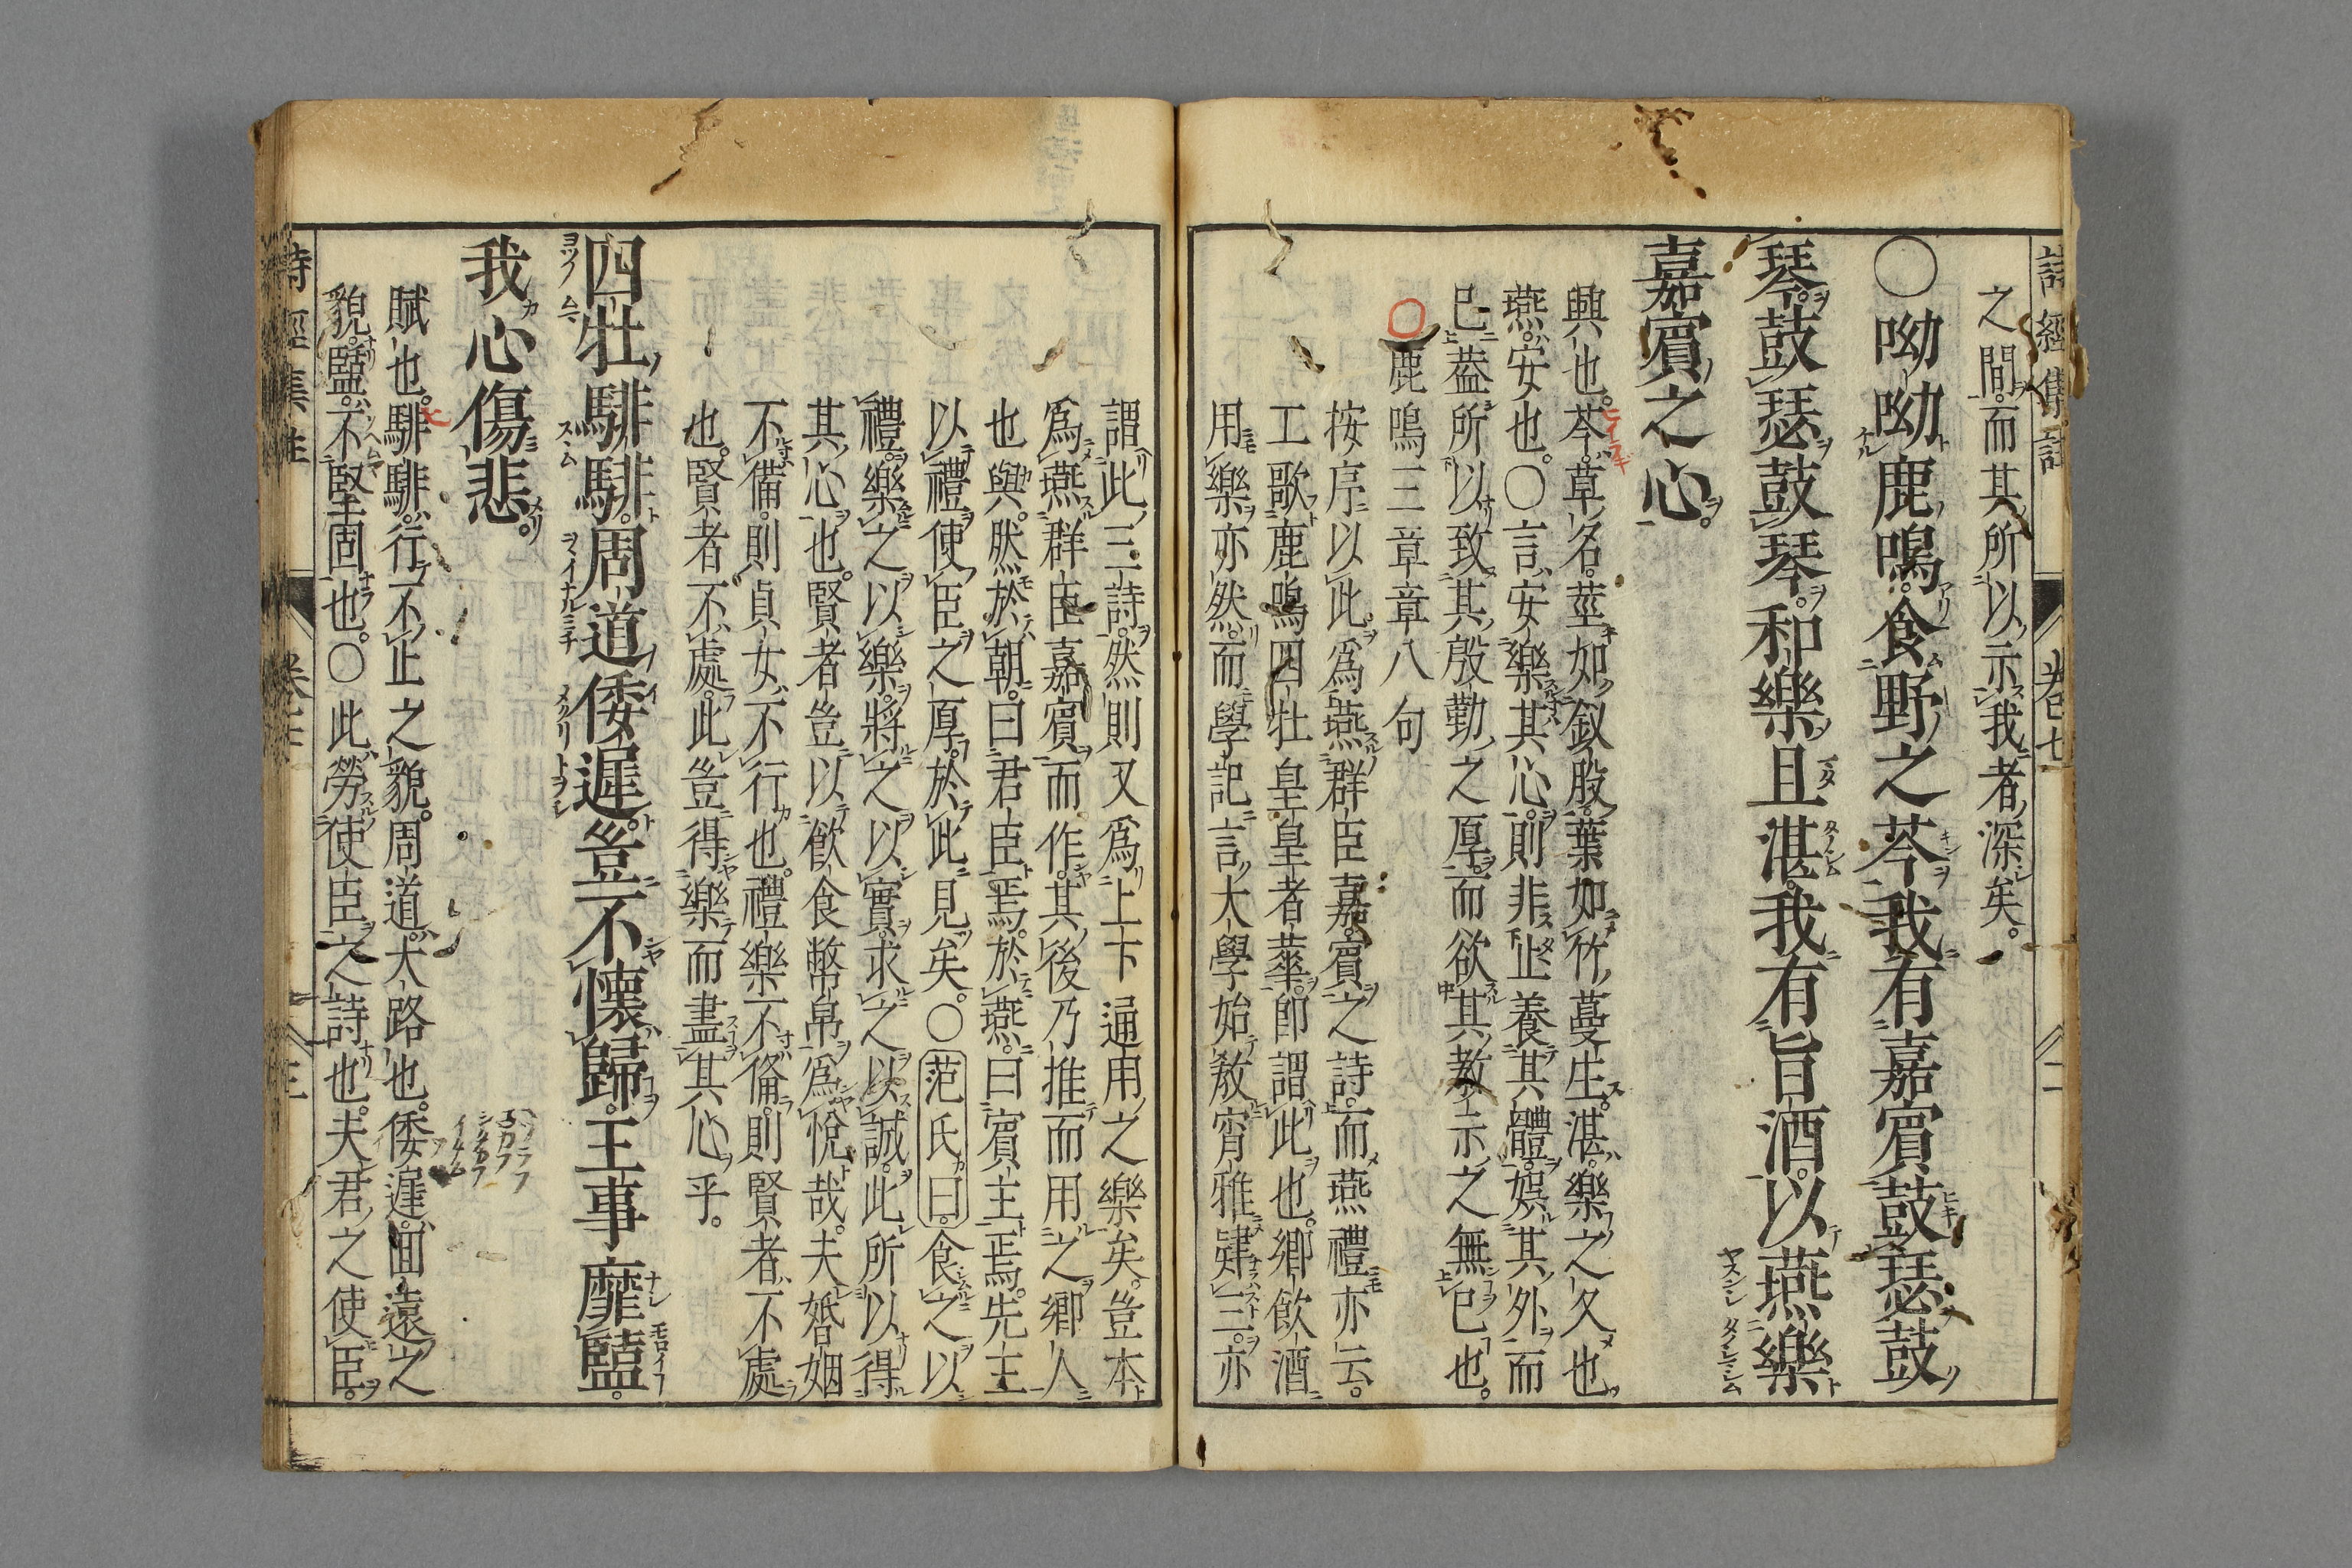 詩經集註 卷七 二
之間而其所以示我者深矣。
〇呦呦鹿鳴食野之芩我有嘉賓鼓瑟鼓
琴鼓瑟鼓琴和樂且湛我有旨酒以燕樂
嘉賓之心。
興也。芩草名。莖如釵股。葉如竹蔓生。湛樂之久也
燕安也。〇言安樂其心。則非止養其體。娯其外而
已。葢所以致其殷勤之厚。而欲其教示之無已也。
〇鹿鳴三章章八句
按序以此爲燕群臣嘉賓之詩。而燕禮亦云。
工歌鹿鳴四牡皇皇者華。即謂此也。鄉飲酒
用樂亦然。而學記言大學始教宵雅肄三。亦
謂此三詩。然則又爲上下通用之樂矣。豈本
爲燕群臣嘉賓而作。其後乃推而用之鄉人
也與。然於朝。曰君臣焉。於燕。曰賓主焉。先王
以禮使臣之厚。於此見矣。〇范氏曰。食之以
禮。樂之以樂。將之以實。求之以誠。此所以得
其心也。賢者豈以飮食幣帛爲悅哉。夫婚姻
不備。則貞女不行也。禮樂不備。則賢者不處
也。賢者不處。此豈得樂而盡其心乎。
四牡騑騑。周道倭遲。豈不懷歸。王事靡盬。
我心傷悲。
賦也。騑騑。行不止之貌。周道。大路也。倭遲。回遠之
貌。盬。不堅固也。〇此勞使臣之詩也。夫君之使臣。
詩經集註 卷七 三